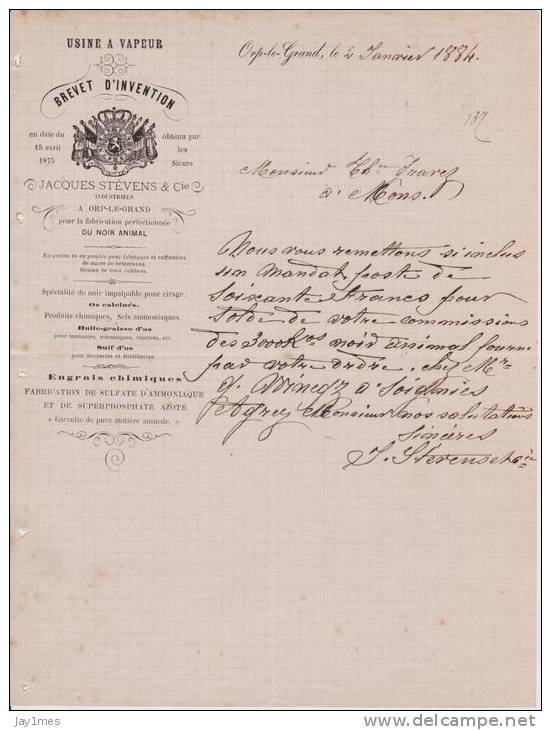 USINE A VAPEUR
BREVET D'INVENTION
en date du
15 avril
1875
obtenu par
les
Sieurs
JACQUES STÉVENS & Cie
INDUSTRIELS
A ORP-LE-GRAND
pour la fabrication perfectionnée
DU NOIR ANIMAL
En grains et en poudre pour fabriques et raffineries
de sucre de betteraves.
Grains de tous calibres.
Spécialité de noir impalpable pour cirage.
Os calcinés.
Produits chimiques, Sels ammoniaques.
Huile-graisse d'os
pour laminoirs, mécaniques, chariots, etc.
Suif d'os
pour Sucreries et Distilleries
Engrais chimiques
FABRICATION DE SULFATE D'AMMONIAQUE
ET DE SUPERPHOSPHATE AZOTÉ
« Garantie de pure matière animale. »
Orp-le-Grand, le 2 Janvier 1884.
187
Monsieur
a Mons.
Nous vous remettons si inclus
un Mandat post de
Soixante Francs pour
Solde de votre commissions
des 3000 kos noir animal fourni
par votre ordre. chez Mr
a Soignies
Agreez Monsieur nos salutations
Sincères
J. Stévens et Cie
Jay1mes
delcampe.net